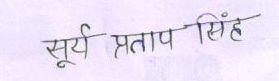 सूर्य प्रताप सिंह